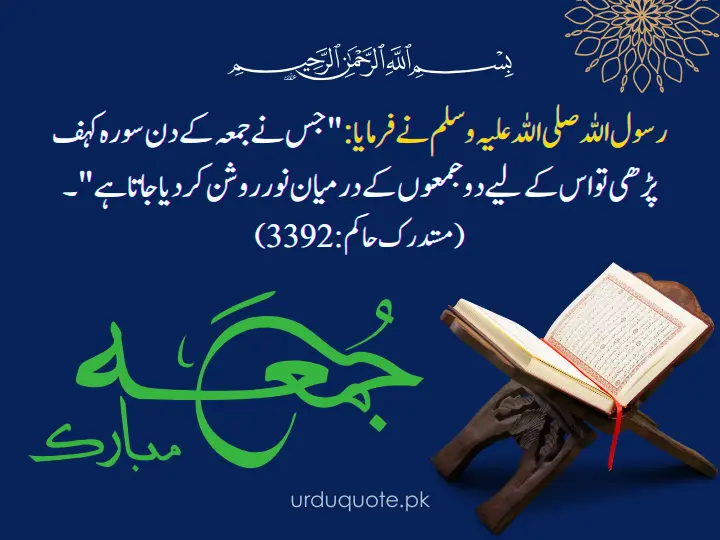 بِسْمِ اللهِ الرَّحْمٰنِ الرَّحِيْمِ
رسول اللہ صلی اللہ علیہ وسلم نے فرمایا: "جس نے جمعہ کے دن سورہ کہف
پڑھی تو اس کے لیے دو جمعوں کے درمیان نور روشن کر دیا جاتا ہے"۔
(مستدرک حاکم: 3392)
جُمُعَہ
مبارک
urduquote.pk